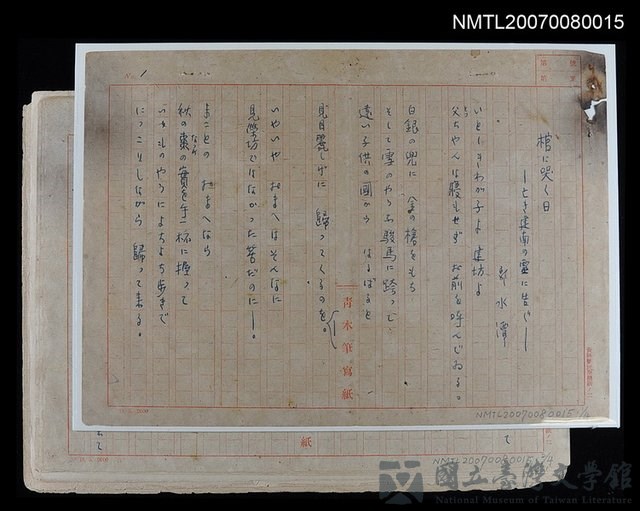 NMTL20070080015
棺に哭く日
―亡き建南の霊に告ぐ―
郭水潭
いとしきわが子よ 建坊よ
父ちやんは寝もせず お前を呼んでゐる。
白銀の兜に 金の槍をもち
そして雪のやうな駿馬に跨つて
遠い子供の国から はるばると
見目麗しげに 歸つてくるのを。
いやいや おまへはそんなに
見榮坊ではなかつた筈だのに―。
まことの おまへなら
秋の棗の實を手一杯に握つて
いつものやうによちよち歩きで
につこりしながら 歸つて来る。
青木筆寫紙
NMTL20070080015
紙
NMTL20070080015
國立臺灣文學館
National Museum of Taiwan Literature